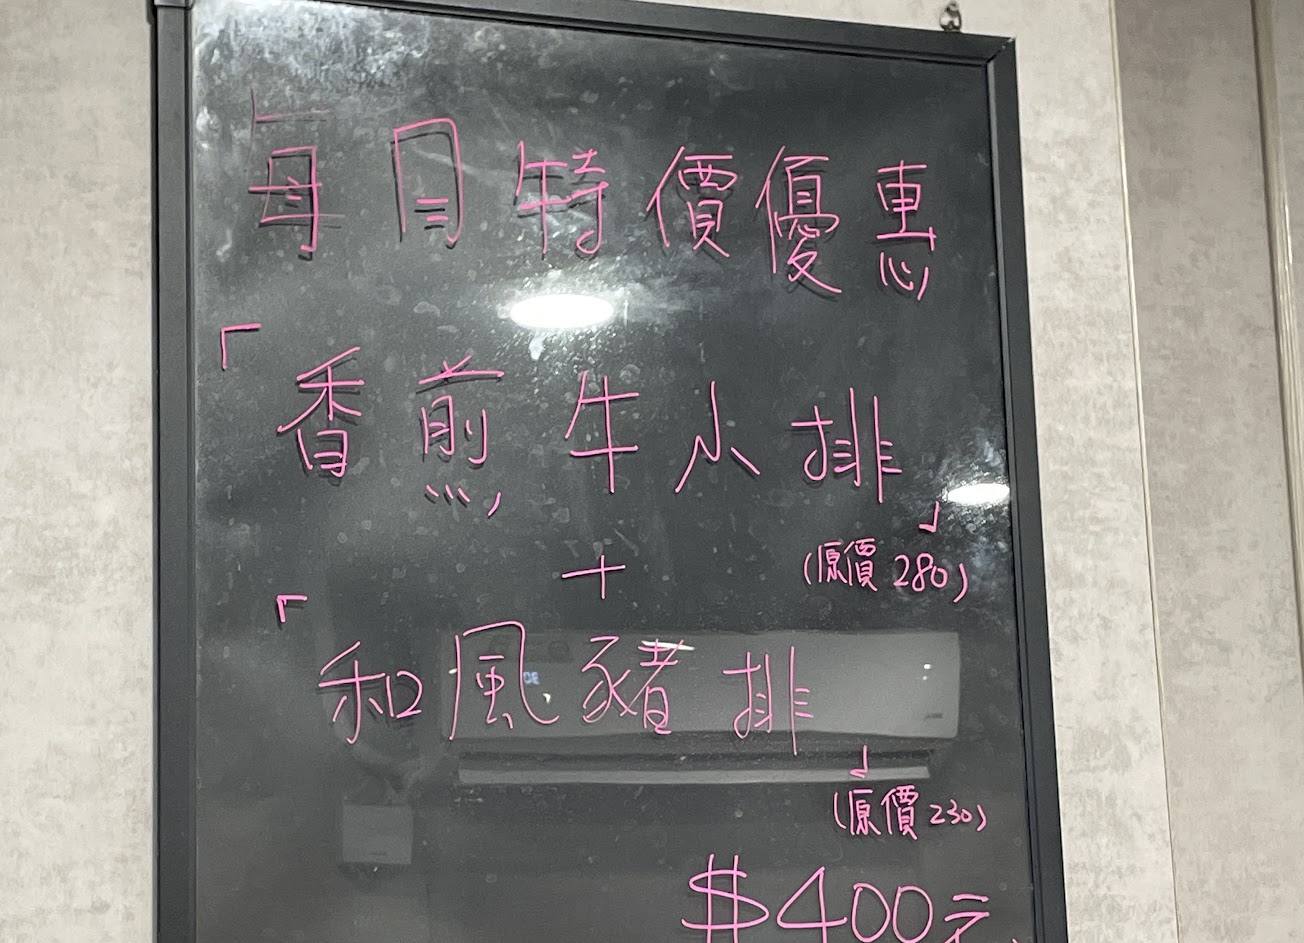 每日特價優惠
「香煎牛小排」
(原價280)
+
「和風豬排」
(原價230)
$400元